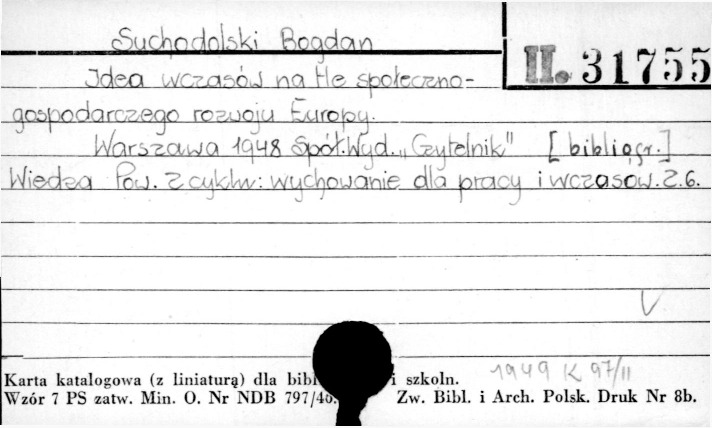 Suchodolski Bogdan
II. 31755
Idea wczasów na tle społeczno-
gospodarczego rozwoju Europy.
Warszawa 1948 Spół.Wyd. „Czytelnik" [bibliogr.]
Wiedza Pow. Z cyklu: wychowanie dla pracy i wczasów. Z.6.
V
1949 K 97/II
Karta katalogowa (z liniaturą) dla bibl i szkoln.
Wzór 7 PS zatw. Min. O. Nr NDB 797/46. Zw. Bibl. i Arch. Polsk. Druk Nr 8b.